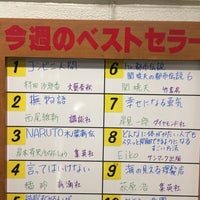 今週のベストセラー
1
コンビニ人間
村田沙耶香 文藝春秋
2
撫物語
西尾維新 講談社
3
NARUTO木ノ葉新伝
集英社
4
言ってはいけない
橘 玲 新潮社
5
6
関暁夫の都市伝説 6
関 暁夫 竹書房
7
幸せになる勇気
岸見一郎 ダイヤモンド社
8
どんなに体がかたい人でも
ベターッと開脚できるようになる
すごい方法
Eiko サンマーク出版
9
海の見える理髪店
荻原 浩 集英社
10